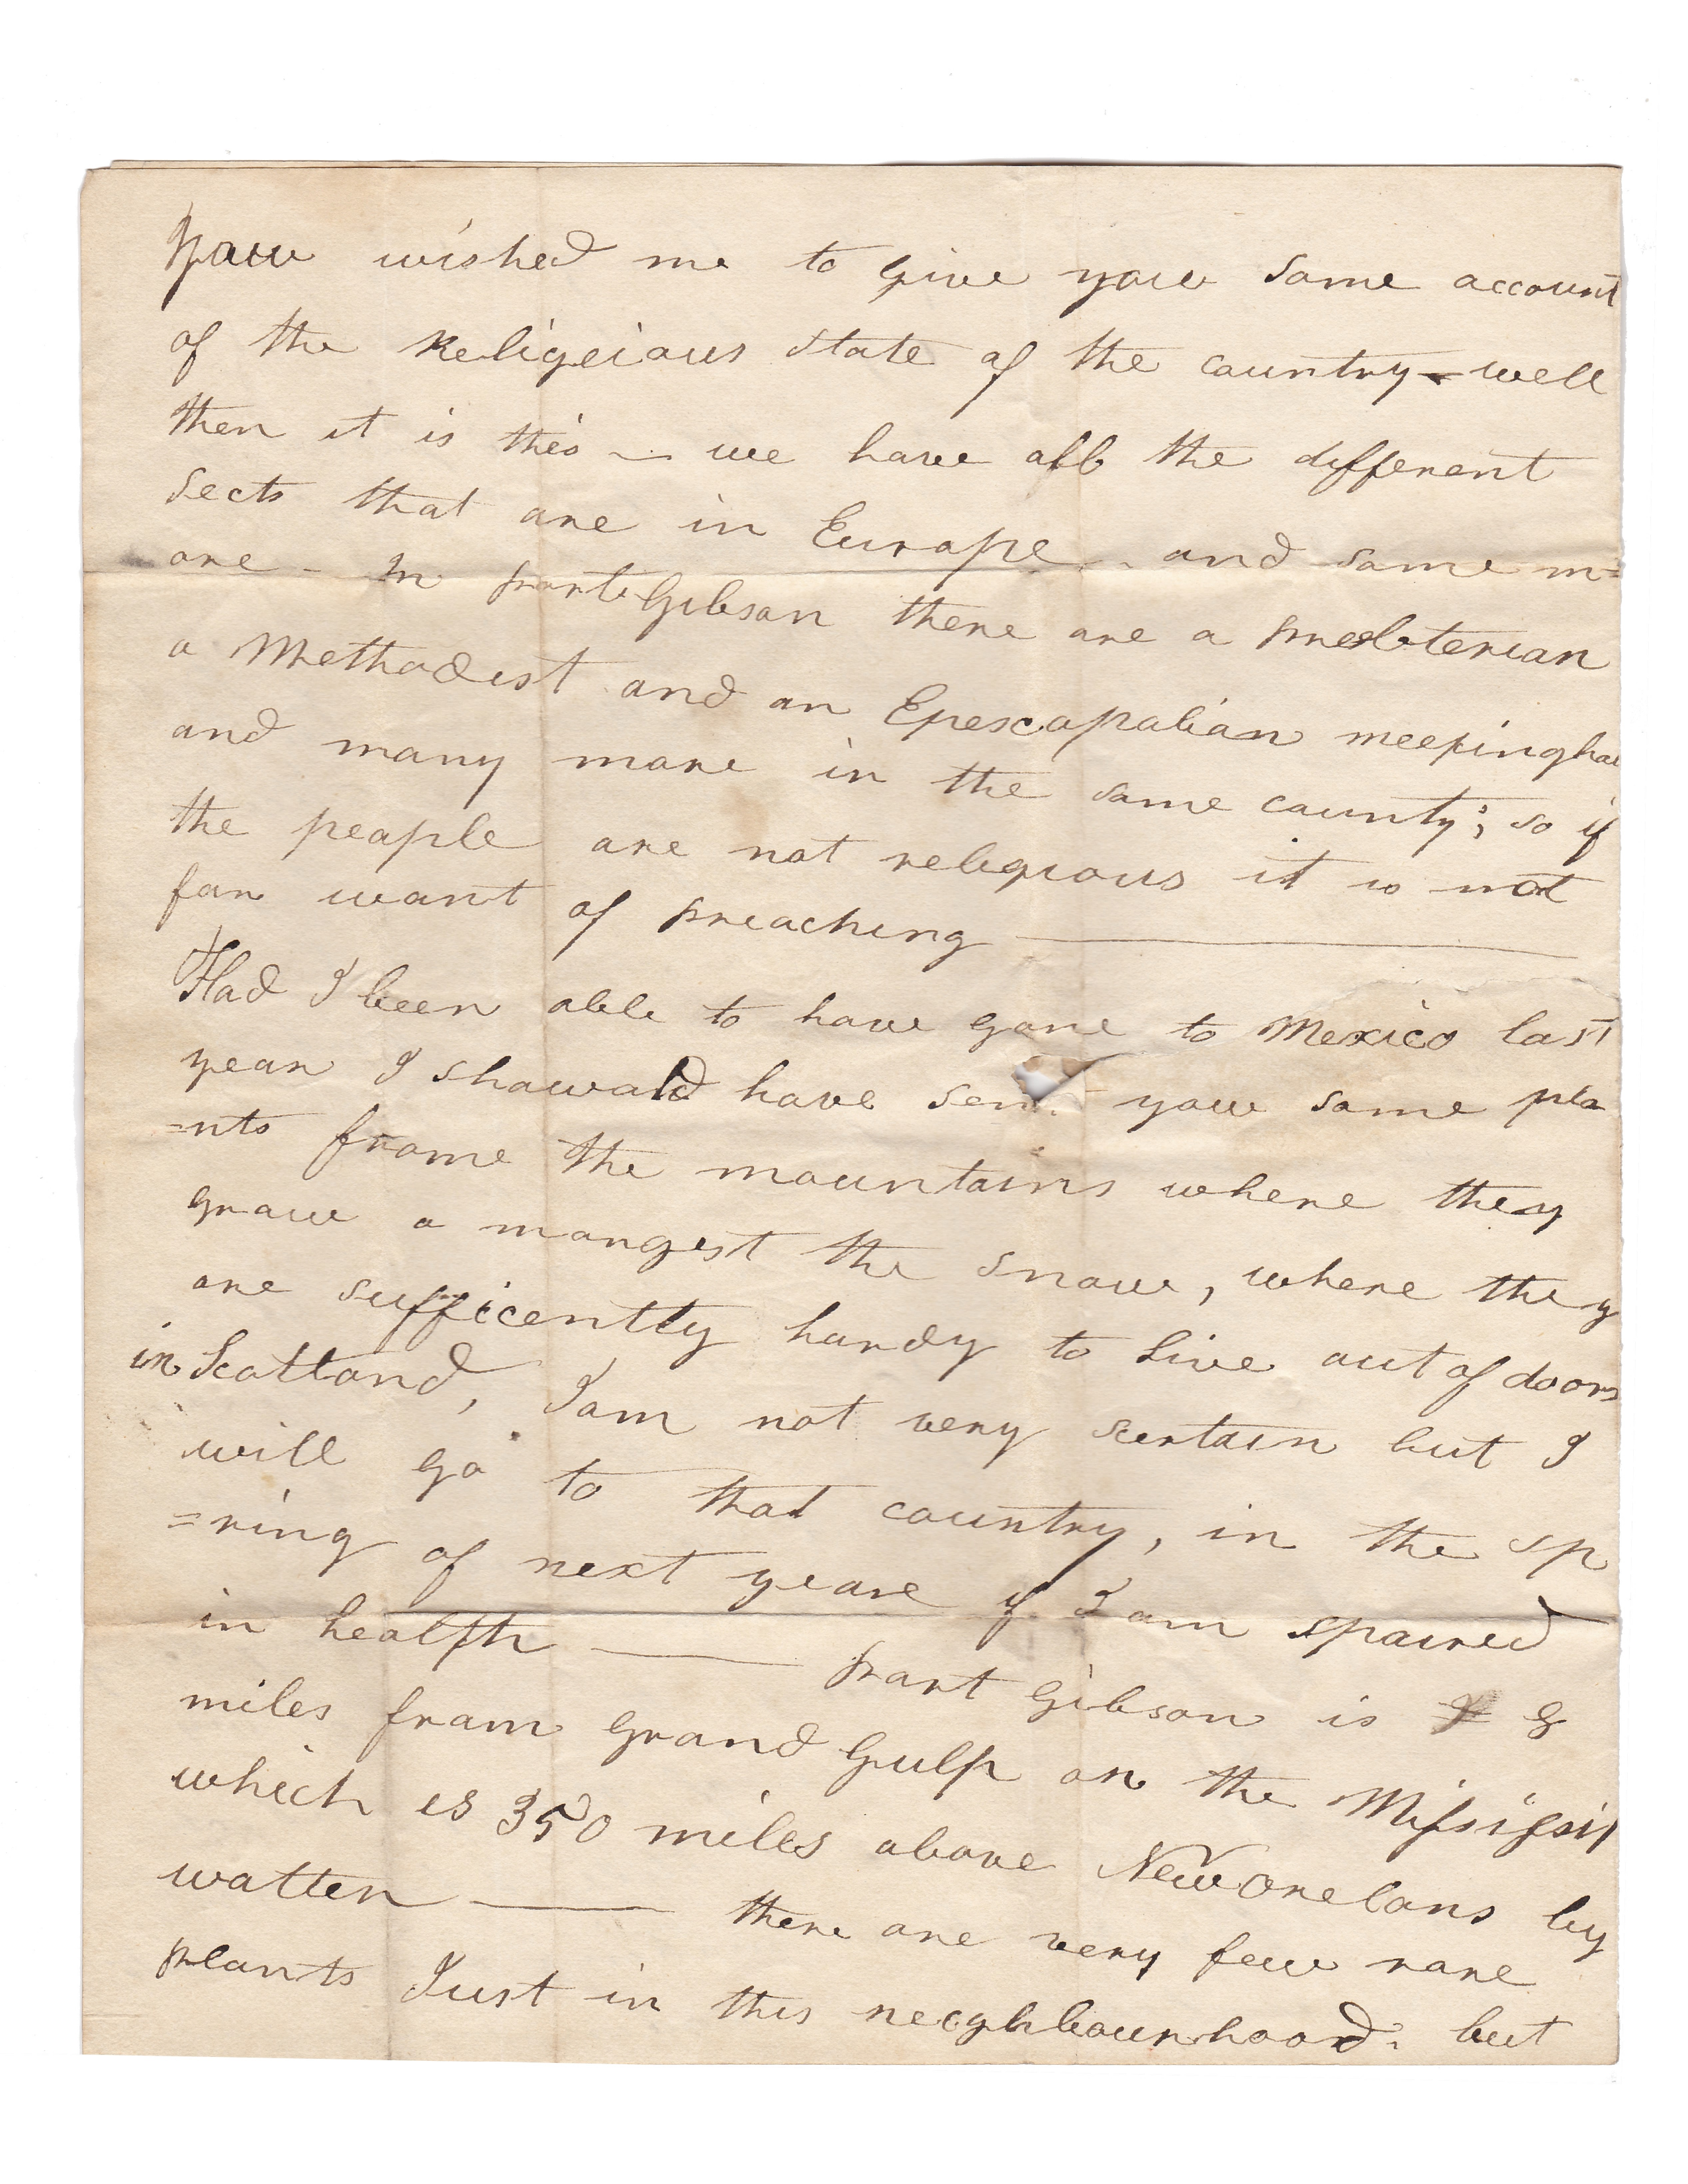 youw wished me to give youw some account
of the Religeious state of the country - well
then it is this - we have all the different
sects that are in Europe - and some m=
ore - In portGibson there are a presbterian
a Methodist and an Epescopalian meetinghou
and many more in the same county; so if
the people are not religious it is not
for want of preaching
Had I been able to have gone to Mexico last
year I showald have sent youw some pla
=nts frome the mountains where they
grow a mongest the snow, where they
are sufficently hardy to live out of doors
in Scotland, I am not very sertain but I
will go to that country, in the sp
=ring of next yeare if I am spaired
in health - port Gibson is 8
miles from Grand Gulph on the Missisip
which is 350 miles above NewOrelans by
watter - there are very few rare
plants Just in this neighbourhood. but